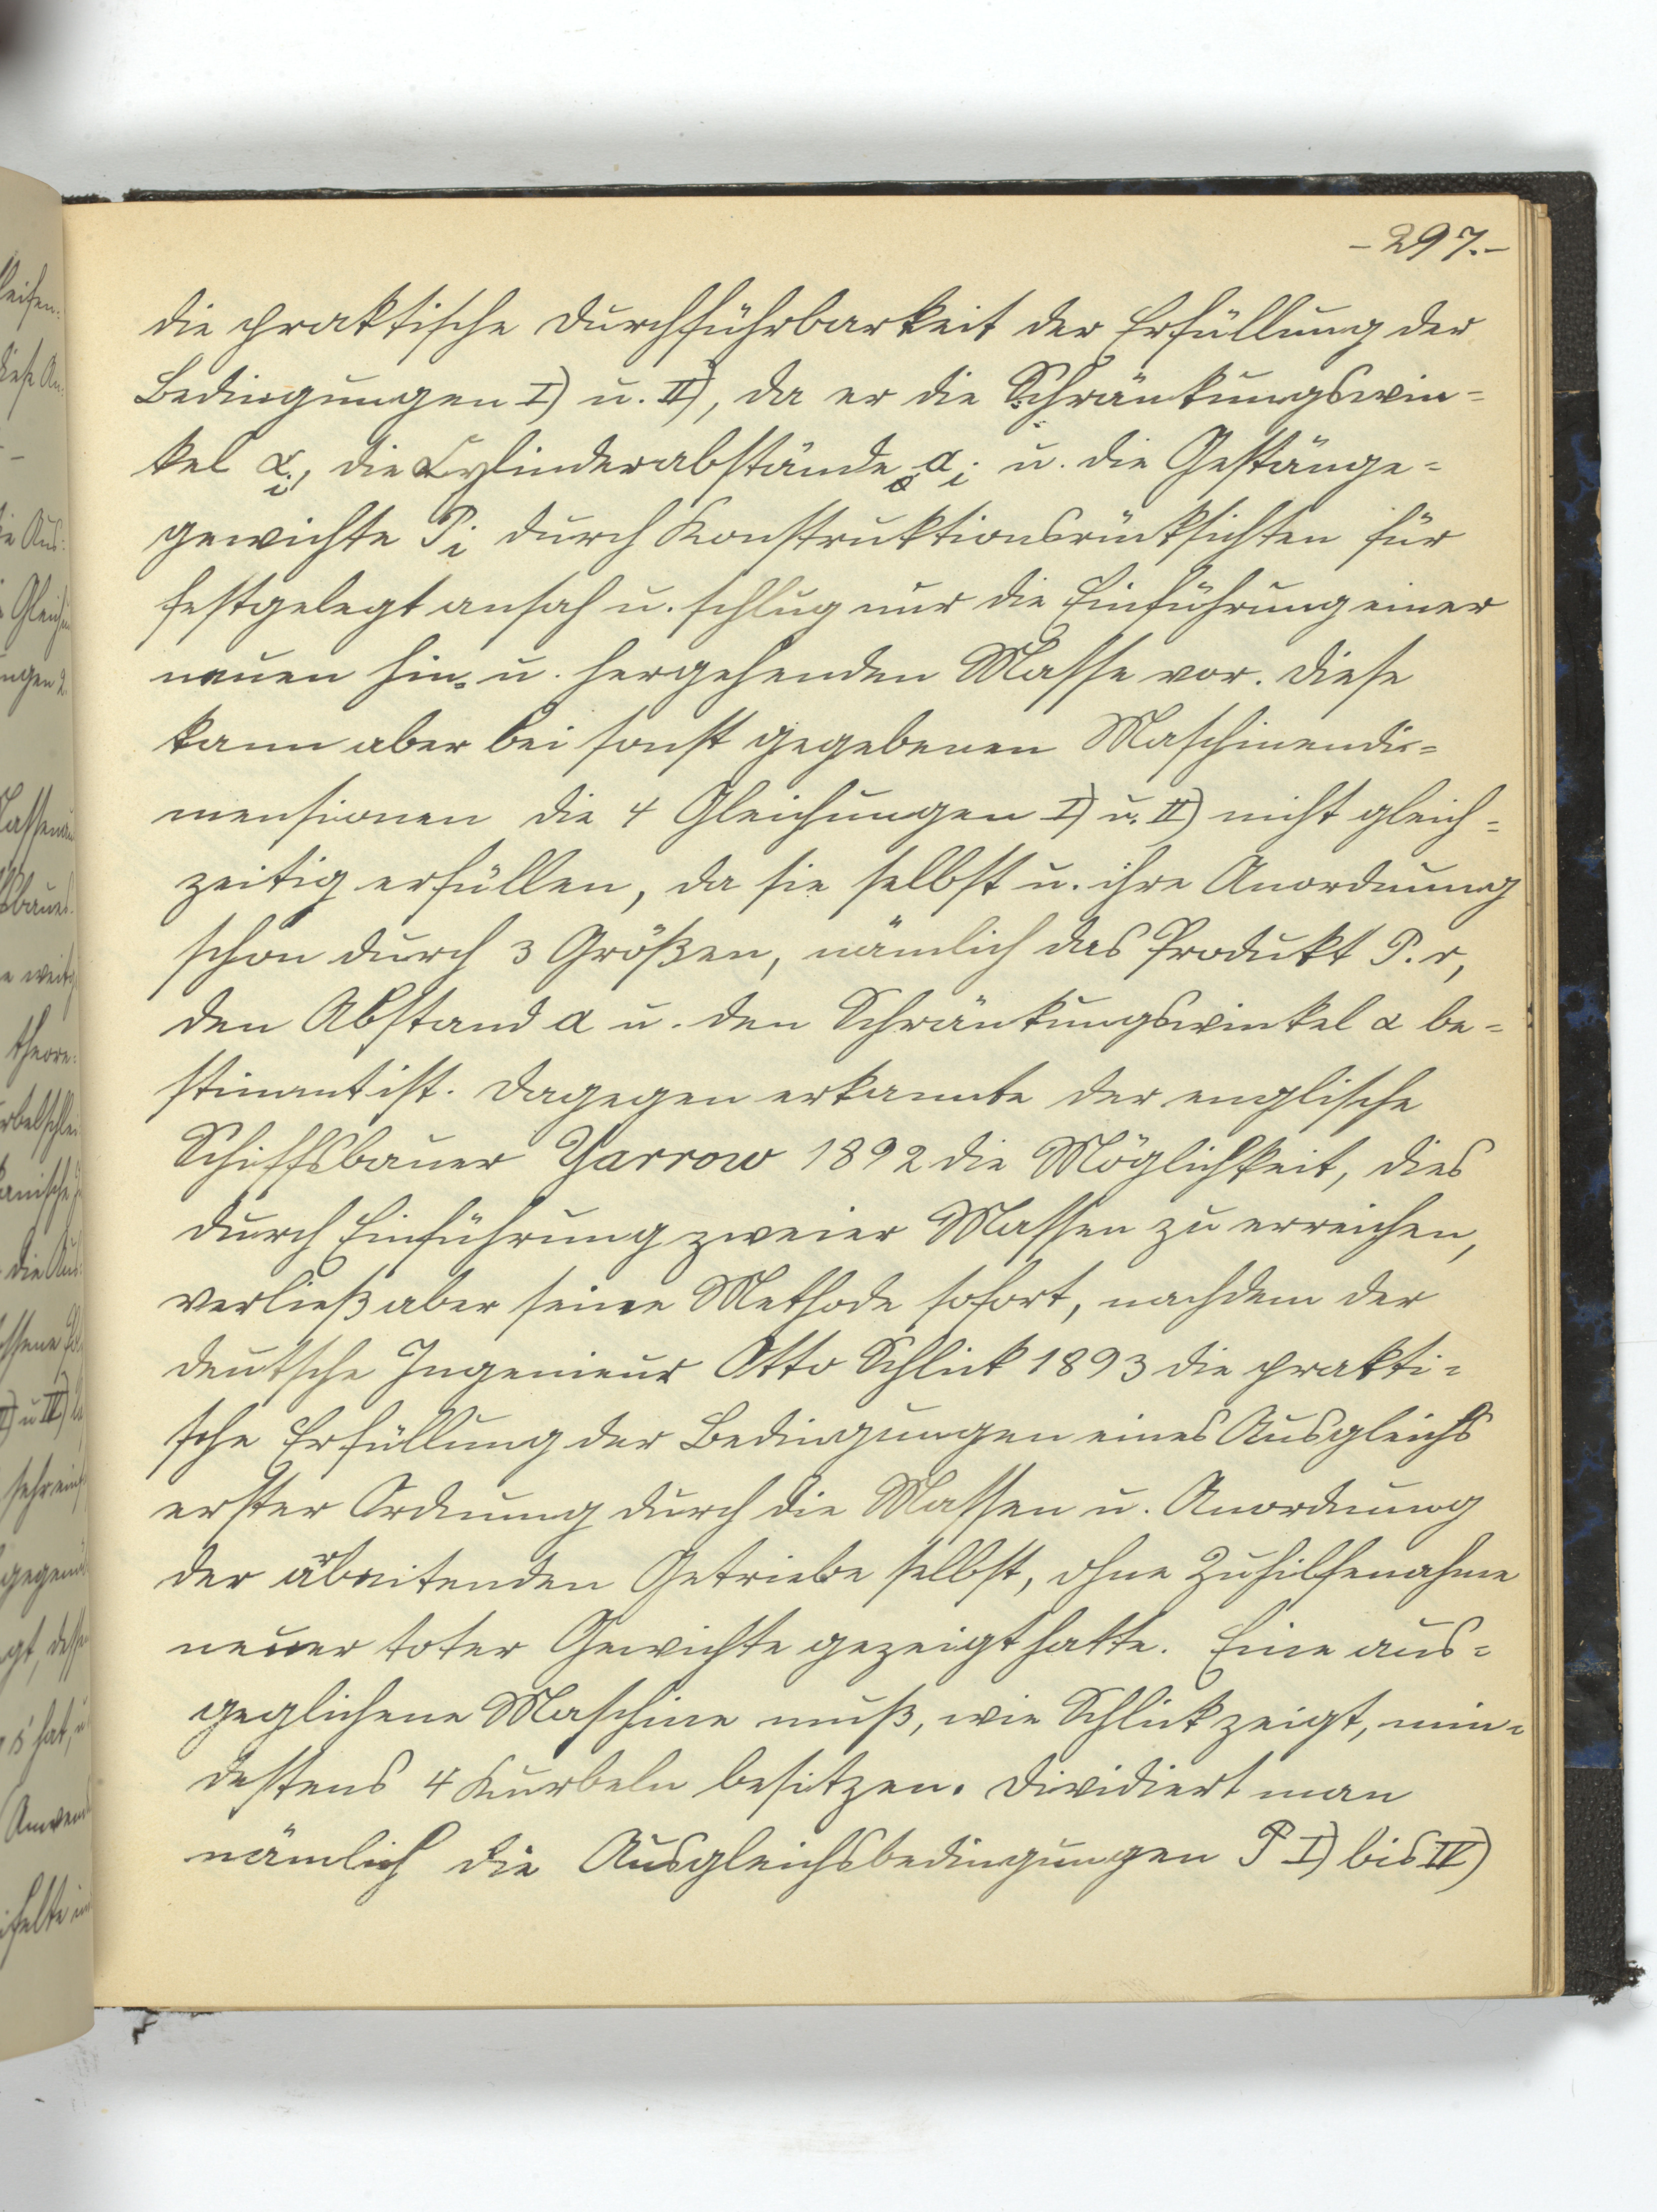 -297.-
die praktische Durchführbarkeit der Erfüllung der
Bedingungen I) u. II), da er die Schränkungswin=
kel α_i, die Cylinderabstände a_i u. die Gestänge=
gewichte P_i durch Konstruktionsrücksichten für
festgelegt ansah u. schlug nur die Einführung einer
neuen hin= u. hergehenden Masse vor. Diese
kann aber bei sonst gegebenen Maschinendi=
mensionen die 4 Gleichungen I) u. II) nicht gleich=
zeitig erfüllen, da sie selbst u. ihre Anordnung
schon durch 3 Größen, nämlich das Produkt P.r,
den Abstand a u. den Schränkungswinkel α be=
stimmt ist. Dagegen erkannte der englische
Schiffsbauer Yarrow 1892 die Möglichkeit, dies
durch Einführung zweier Massen zu erreichen,
verließ aber seine Methode sofort, nachdem der
deutsche Ingenieur Otto Schlick 1893 die prakti=
sche Erfüllung der Bedingungen eines Ausgleichs
erster Ordnung durch die Massen u. Anordnung
der arbeitenden Getriebe selbst, ohne Zuhilfenahme
neuer toter Gewichte gezeigt hatte. Eine aus=
geglichene Maschine muß, wie Schlick zeigt, min=
destens 4 Kurbeln besitzen. Dividiert man
nämlich die Ausgleichsbedingungen P I) bis IV)